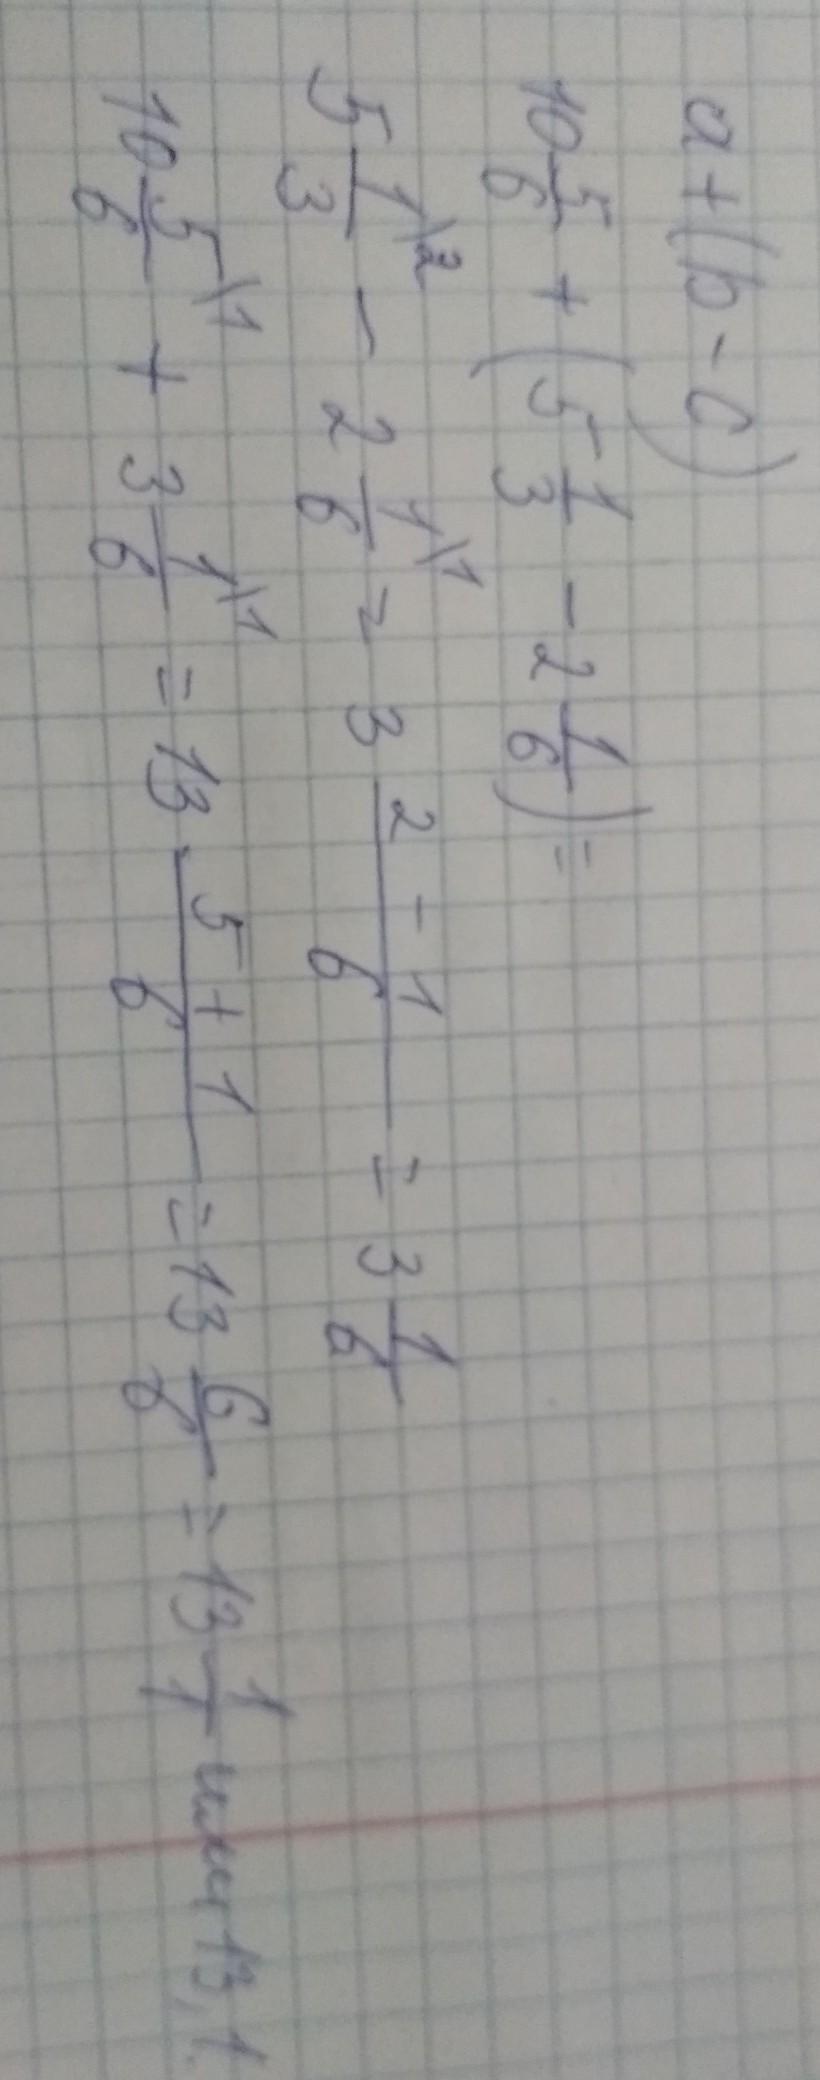 a + (b - c)
10 5/6 + (5 1/3 - 2 1/6) =
5 1\2/3 - 2 1\1/6 = 3 2 - 1/6 = 3 1/6
10 5\1/6 + 3 1\1/6 = 13 5 + 1/6 = 13 6/6 = 13 1/1 или 13,1.